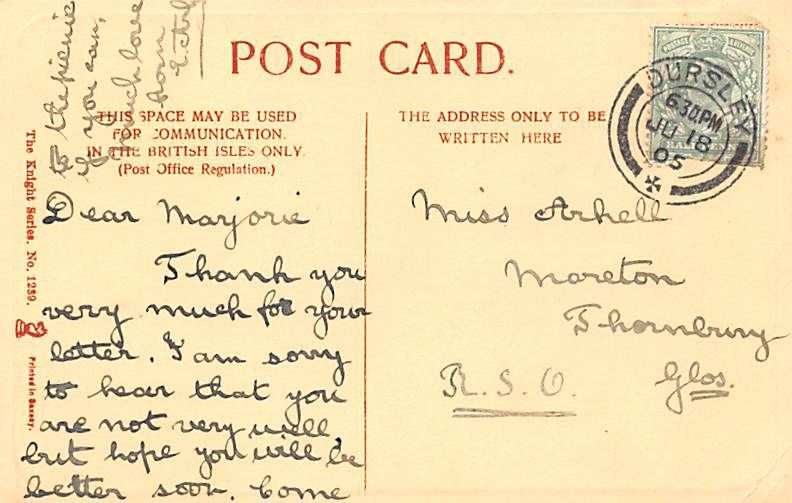 POST CARD.
THIS SPACE MAY BE USED
FOR COMMUNICATION.
IN THE BRITISH ISLES ONLY.
(Post Office Regulation.)
THE ADDRESS ONLY TO BE
WRITTEN HERE
DURSLEY
6 30 PM
JU 18
05
POSTAGE
HALFPENNY
The Knight Series. No. 1239.
Printed in Saxony.
Dear Marjorie
Thank you
very much for your
letter. I am sorry
to hear that you
are not very well
but hope you will be
better soon. Come
to the picnic
if you can,
much love
from
Miss Arkell
Moreton
Thornbury
R.S.O. Glos.